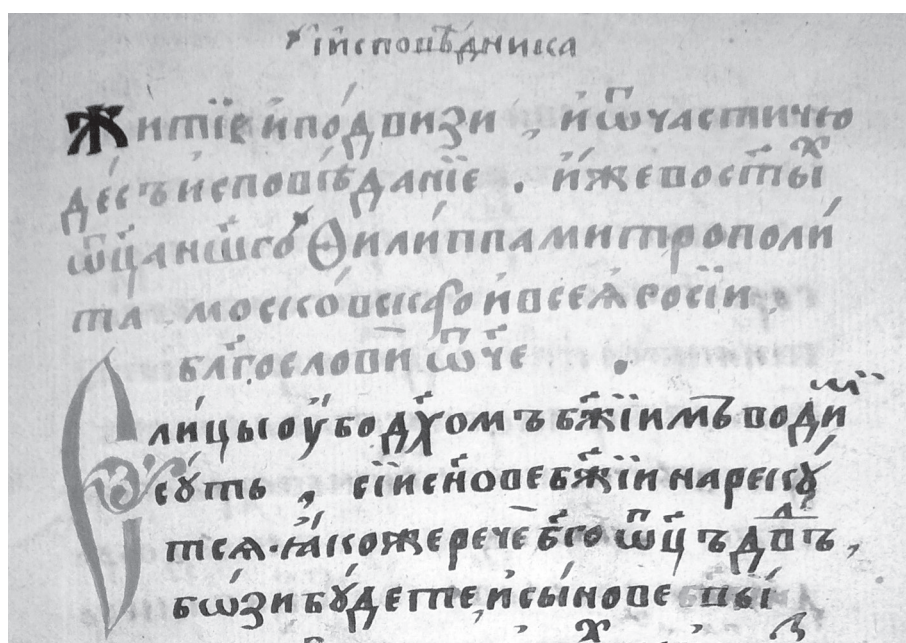 і҆исповѣ́дника
Житїе и҆по́двизи , и҆ѿчастичю
де́съ исповѣ́данїе . и҆́жевост҃ы́х
ѿц҃а нш҃го Ѳили́ппа митрополи́
та моско́вскаго и҆всеѧ̀ росі́и .
бл҃гослови ѿч҃е .
Єли́цы оу҆́бо дх҃омъ бж҃їимъ води́ми
сꙋ́ть , сі́и сн҃ове бж҃їи нарекꙋ́
тсѧ . ꙗ҆́коже рече бг҃оѿц҃ъ дв҃дъ ,
бѡ́зи бꙋ́дете , и҆ сы́нове вы́